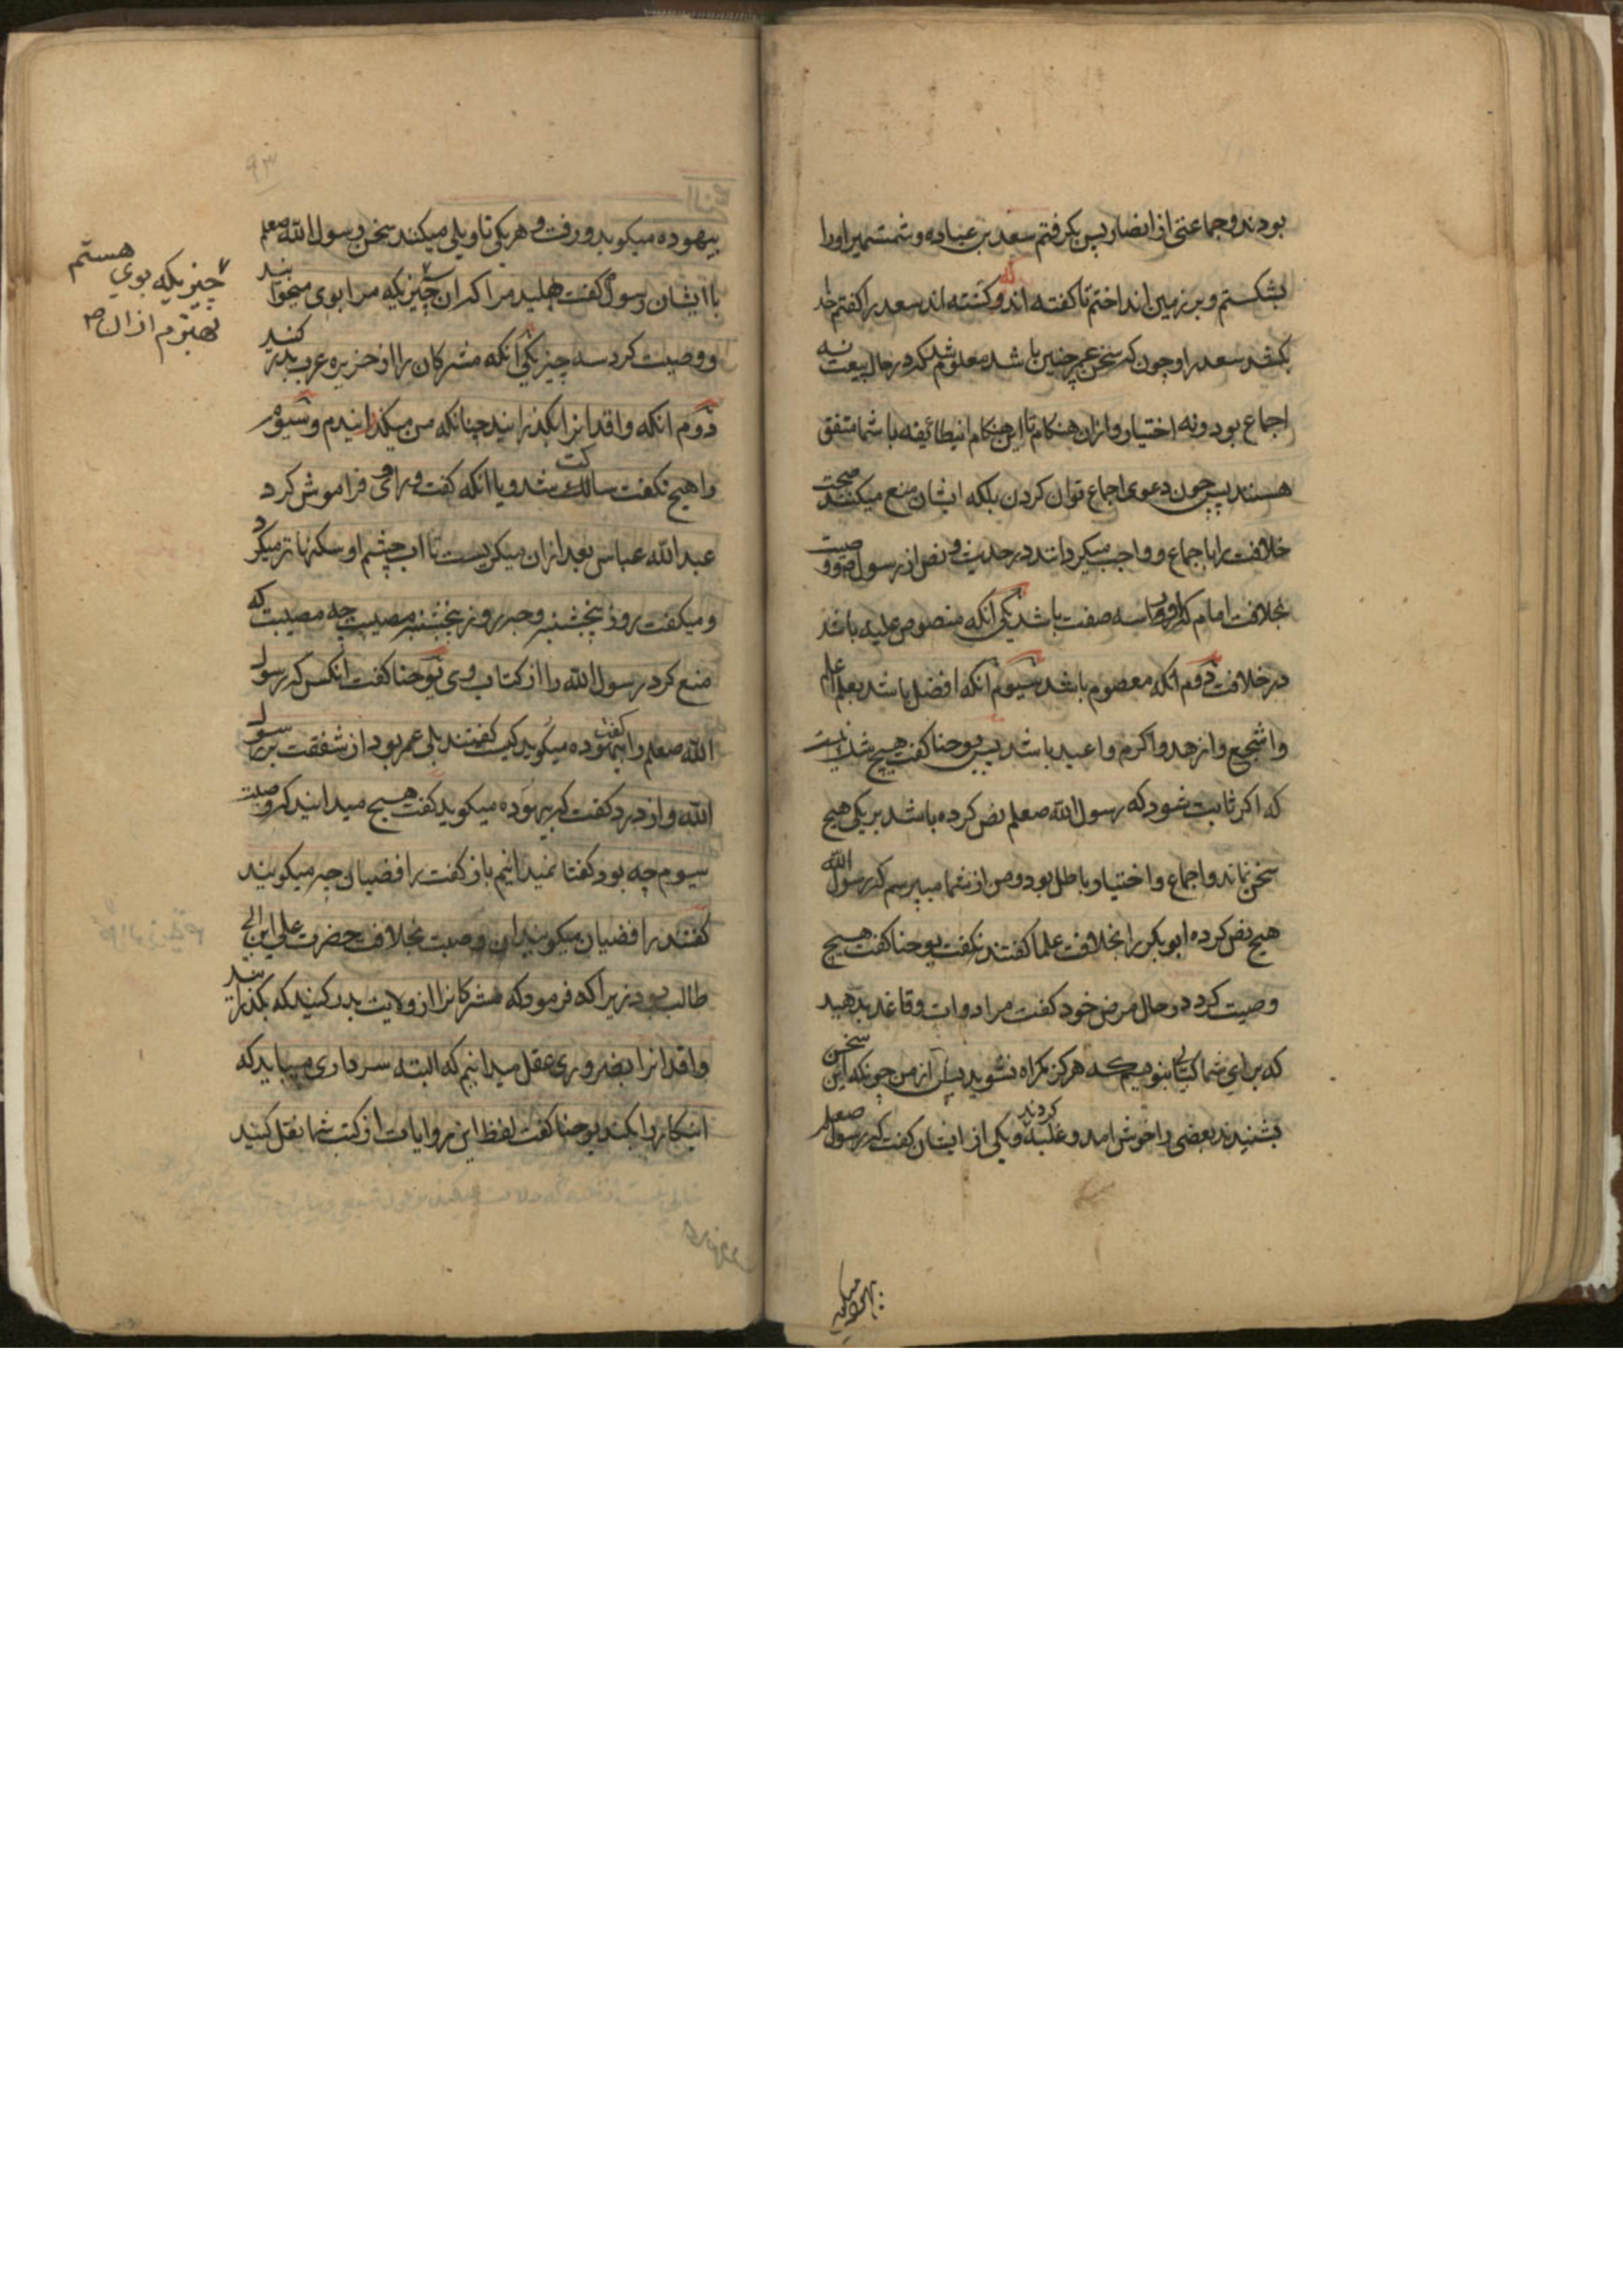 بودند و جماعتی از انصار پس بکرفتم سعد بن عباده و شمشیر او را
بشکستم و بر زمین انداختم تا کفته اند و کشته اند سعد را کفتم خدا
بکشد سعد را و چون که سخن عمر چنین باشد معلوم شد که در حال بیعت نه
اجماع بود و نه اختیار و از ان هنکام تا این هنکام اینطائیفه با شما متفق
هستند پس چون دعوی اجماع توان کردن بلکه ایشان منع میکنند صحت
خلافت را باجماع و واجب میکردانند در حدیث و نص از رسول و وصیت
بخلافت امام که او را سه صفت باشد یکی آنکه منصوص علیه باشد
در خلافت دوم آنکه معصوم باشد سیوم آنکه افضل باشد بعلم
و اشجع و ازهد و اکرم و اعبد باشد پس یوحنا کفت هیچ شک نیست
که اکر ثابت شود که رسول الله صعلم نص کرده باشد بر یکی هیچ
سخن نماند و اجماع و اختیار باطل بود و من از شما میپرسم که رسول الله
هیچ نص کرده ابو بکر را بخلافت علما کفتند نکفت یوحنا کفت هیچ
وصیت کرد در حال مرض خود کفت مرا دوات و قاغد بدهید
که برای شما کتابی بنویسم که هرکز کمراه نشوید پس از من چونکه این سخن
بشنیدند بعضی را خوش امد و غلبه کردند و یکی از ایشان کفت که رسول صعلم
بیهوده میکوید
۹۳
بیهوده میکوید و رفت و هر یکی تاویلی میکند سخن رسول الله صعلم
با ایشان رسول کفت هلید مرا که ان چیزیکه مرا بوی میخوانند
چیزیکه بوی هستم
بهترم از ان
و وصیت کرد سه چیز یکی آنکه مشرکان را از جزیره عرب بدر کنید
دوم انکه وافدانرا بکذرانید چنانکه من میکذرانیدم و سیوم
را هیچ نکفت ساکت شد و یا انکه کفت و راوی فراموش کرد
عبد الله عباس بعد از ان میکریست تا اب چشم او سکنها تر میکرد
و میکفت روز پنجشنبه و چه روز پنجشنبه مصیبت چه مصیبت که
منع کرد رسول الله را از کتاب وی یوحنا کفت آنکس که رسول
الله صعلم را کفت بیهوده میکوید کیست کفتند بلی عمر بود از شفقت بر رسول
الله و از درد کفت که بیهوده میکوید کفت هیچ میدانید که وصیت
سیوم چه بود کفتا نمیدانیم باز کفت رافضیان چه میکویند
کفتند رافضیان میکویند ان وصیت بخلافت حضرت علی ابن ابی
طالب بود زیرا که فرمود که مشرکانرا از ولایت بدر کنید که بکذرانید
وافدانرا بضروری عقل میدانیم که البته سرداری میباید که
اینکار را بکند یوحنا کفت لفظ این روایات از کتب شما نقل کنید